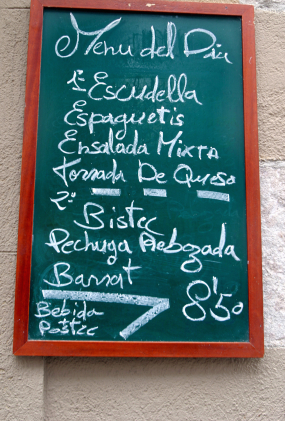 Menu del Dia
1º Escudella
Espaguetis
Ensalada Mixta
Torrada De Queso
2º
Bistec
Pechuga Rebozada
Barrat
Bebida
Postre
8'50